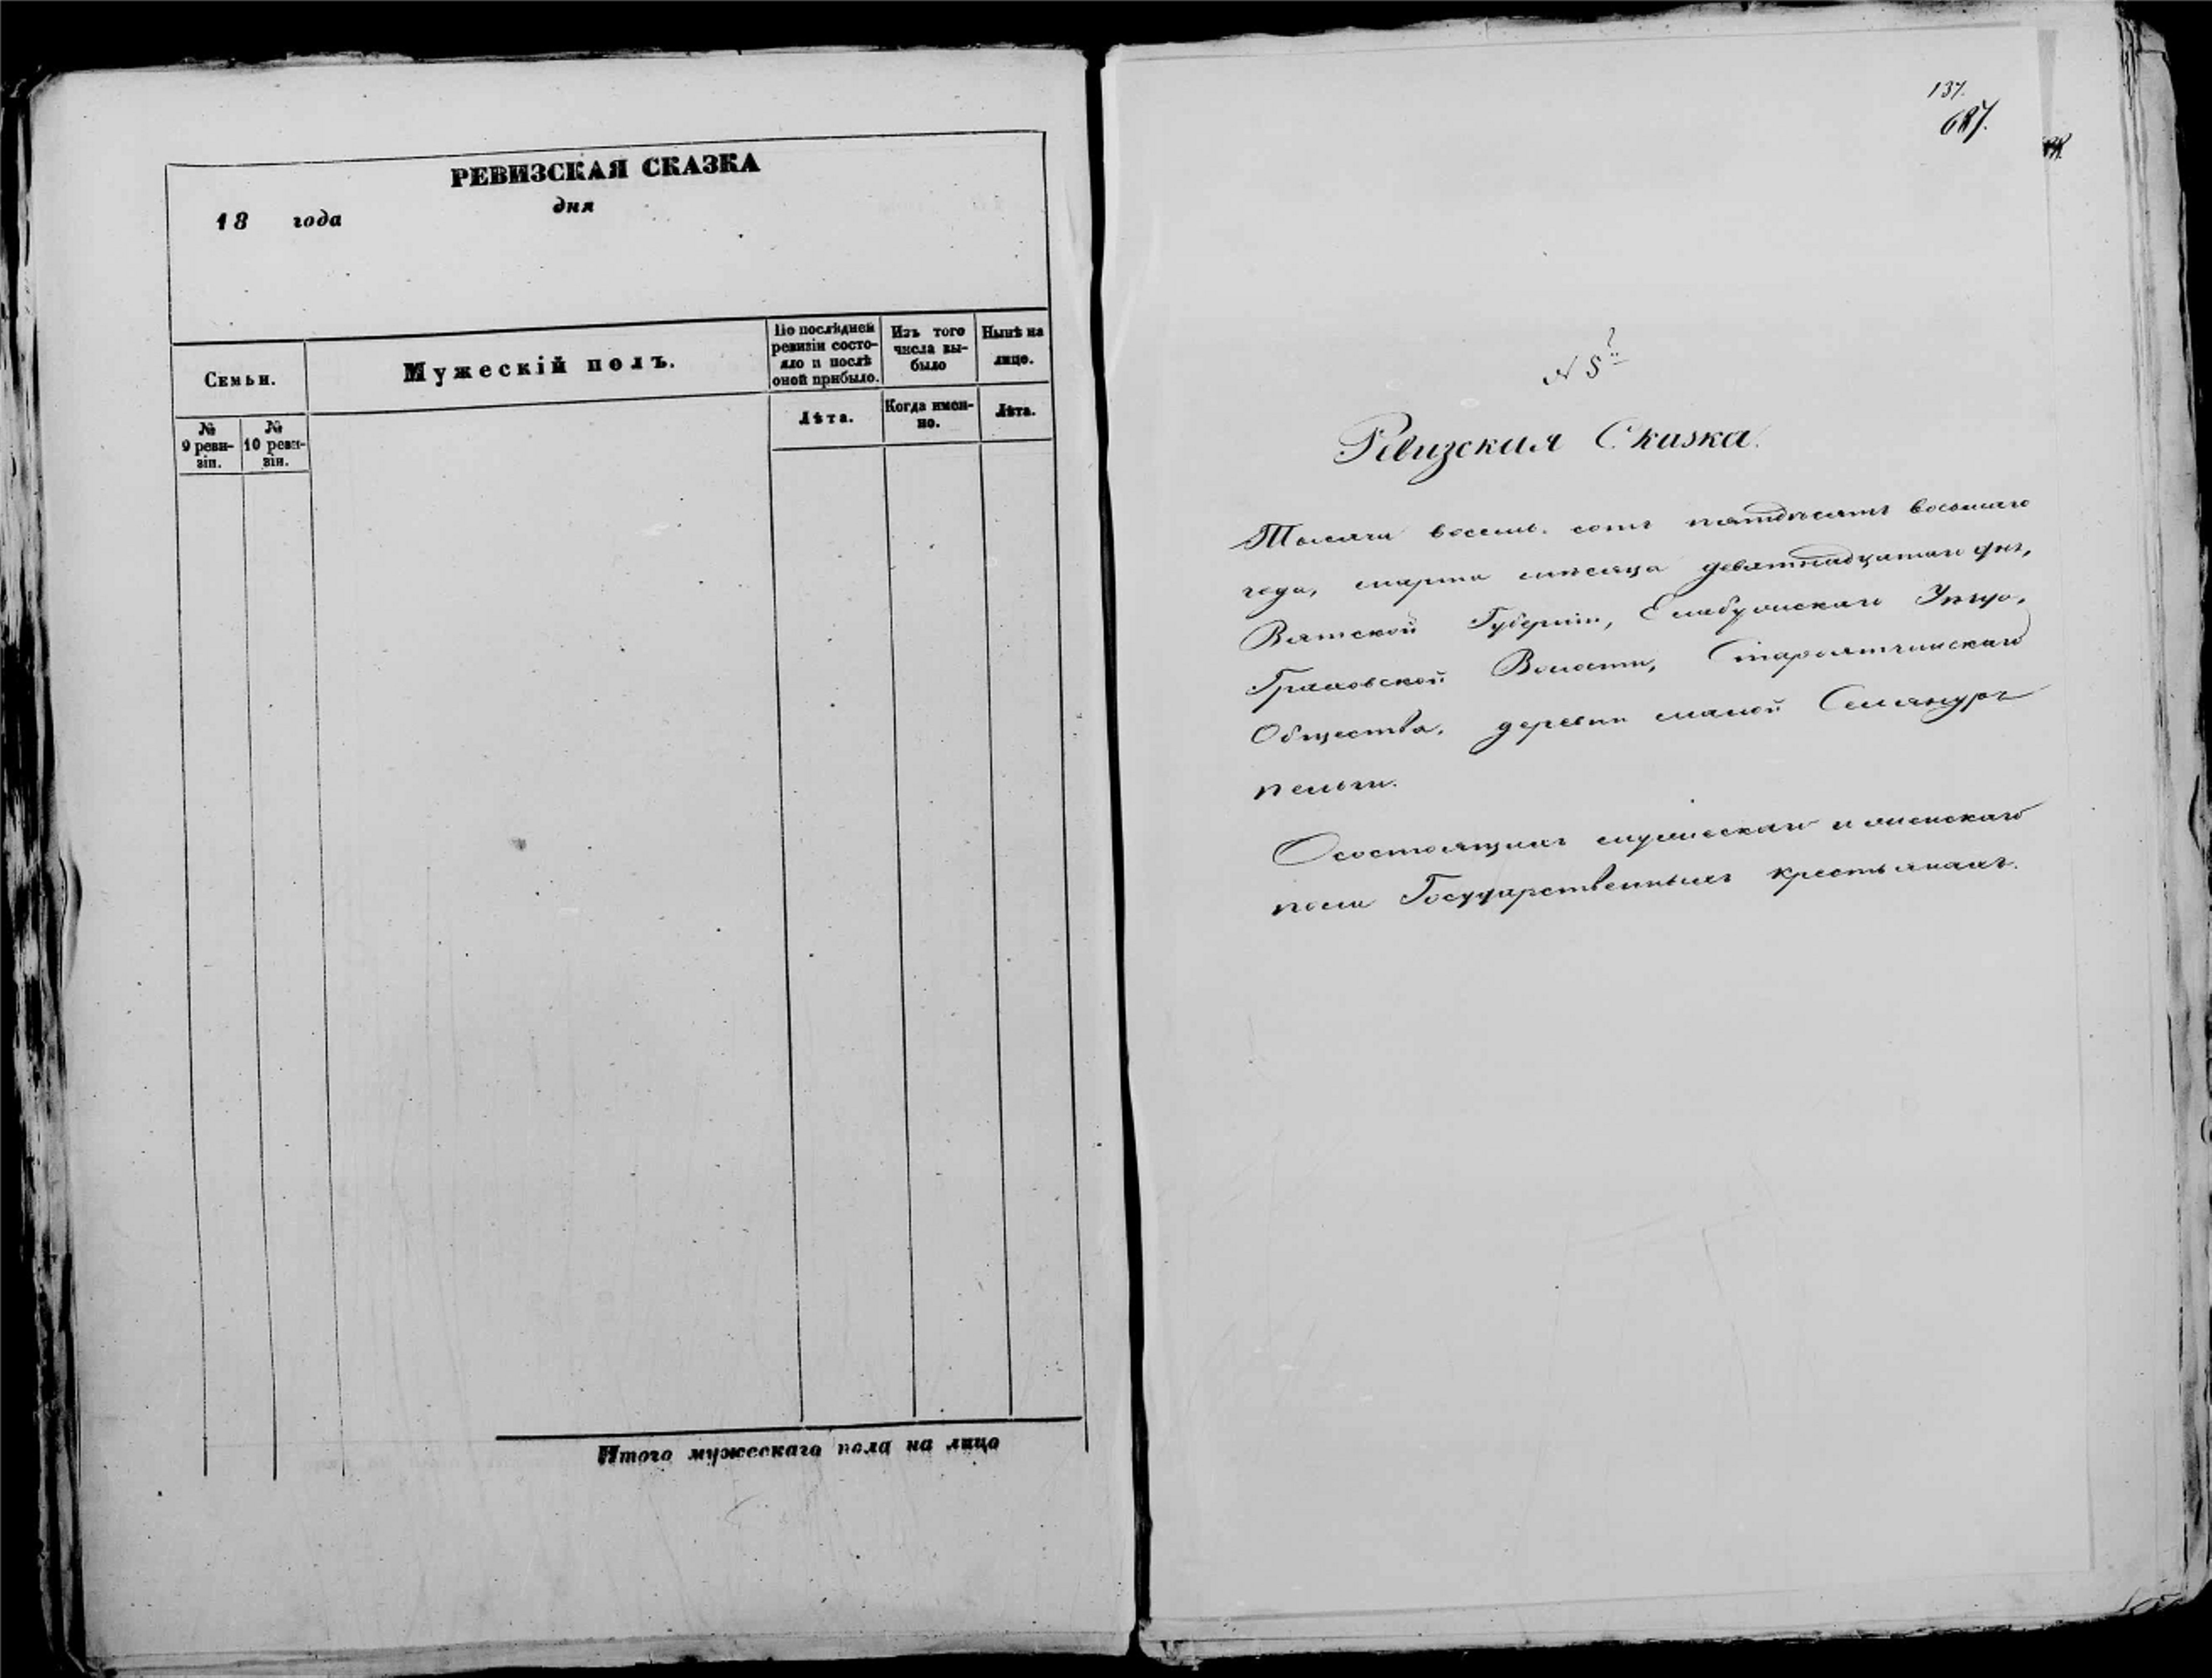 РЕВИЗСКАЯ СКАЗКА
18 года дня
Семьи.
Мужескій полъ.
По послѣдней ревизіи состояло и послѣ оной прибыло.
Изъ того числа выбыло
Нынѣ на лице.
№ 9 ревизіи.
№ 10 ревизіи.
Лѣта.
Когда именно.
Лѣта.
Итого мужескаго пола на лицо
137.
687.
N 5
Ревизская Сказка.
Тысяча восемь сотъ пятдесятъ восьмаго
года, марта мѣсяца девятнадцатаго дня,
Вятской Губерніи, Елабужскаго Уѣзда,
Граховской Волости, Староятчинскаго
Общества, деревни малой
пельги.
О состоящихъ мужескаго и женскаго
пола Государственныхъ крестьянахъ.